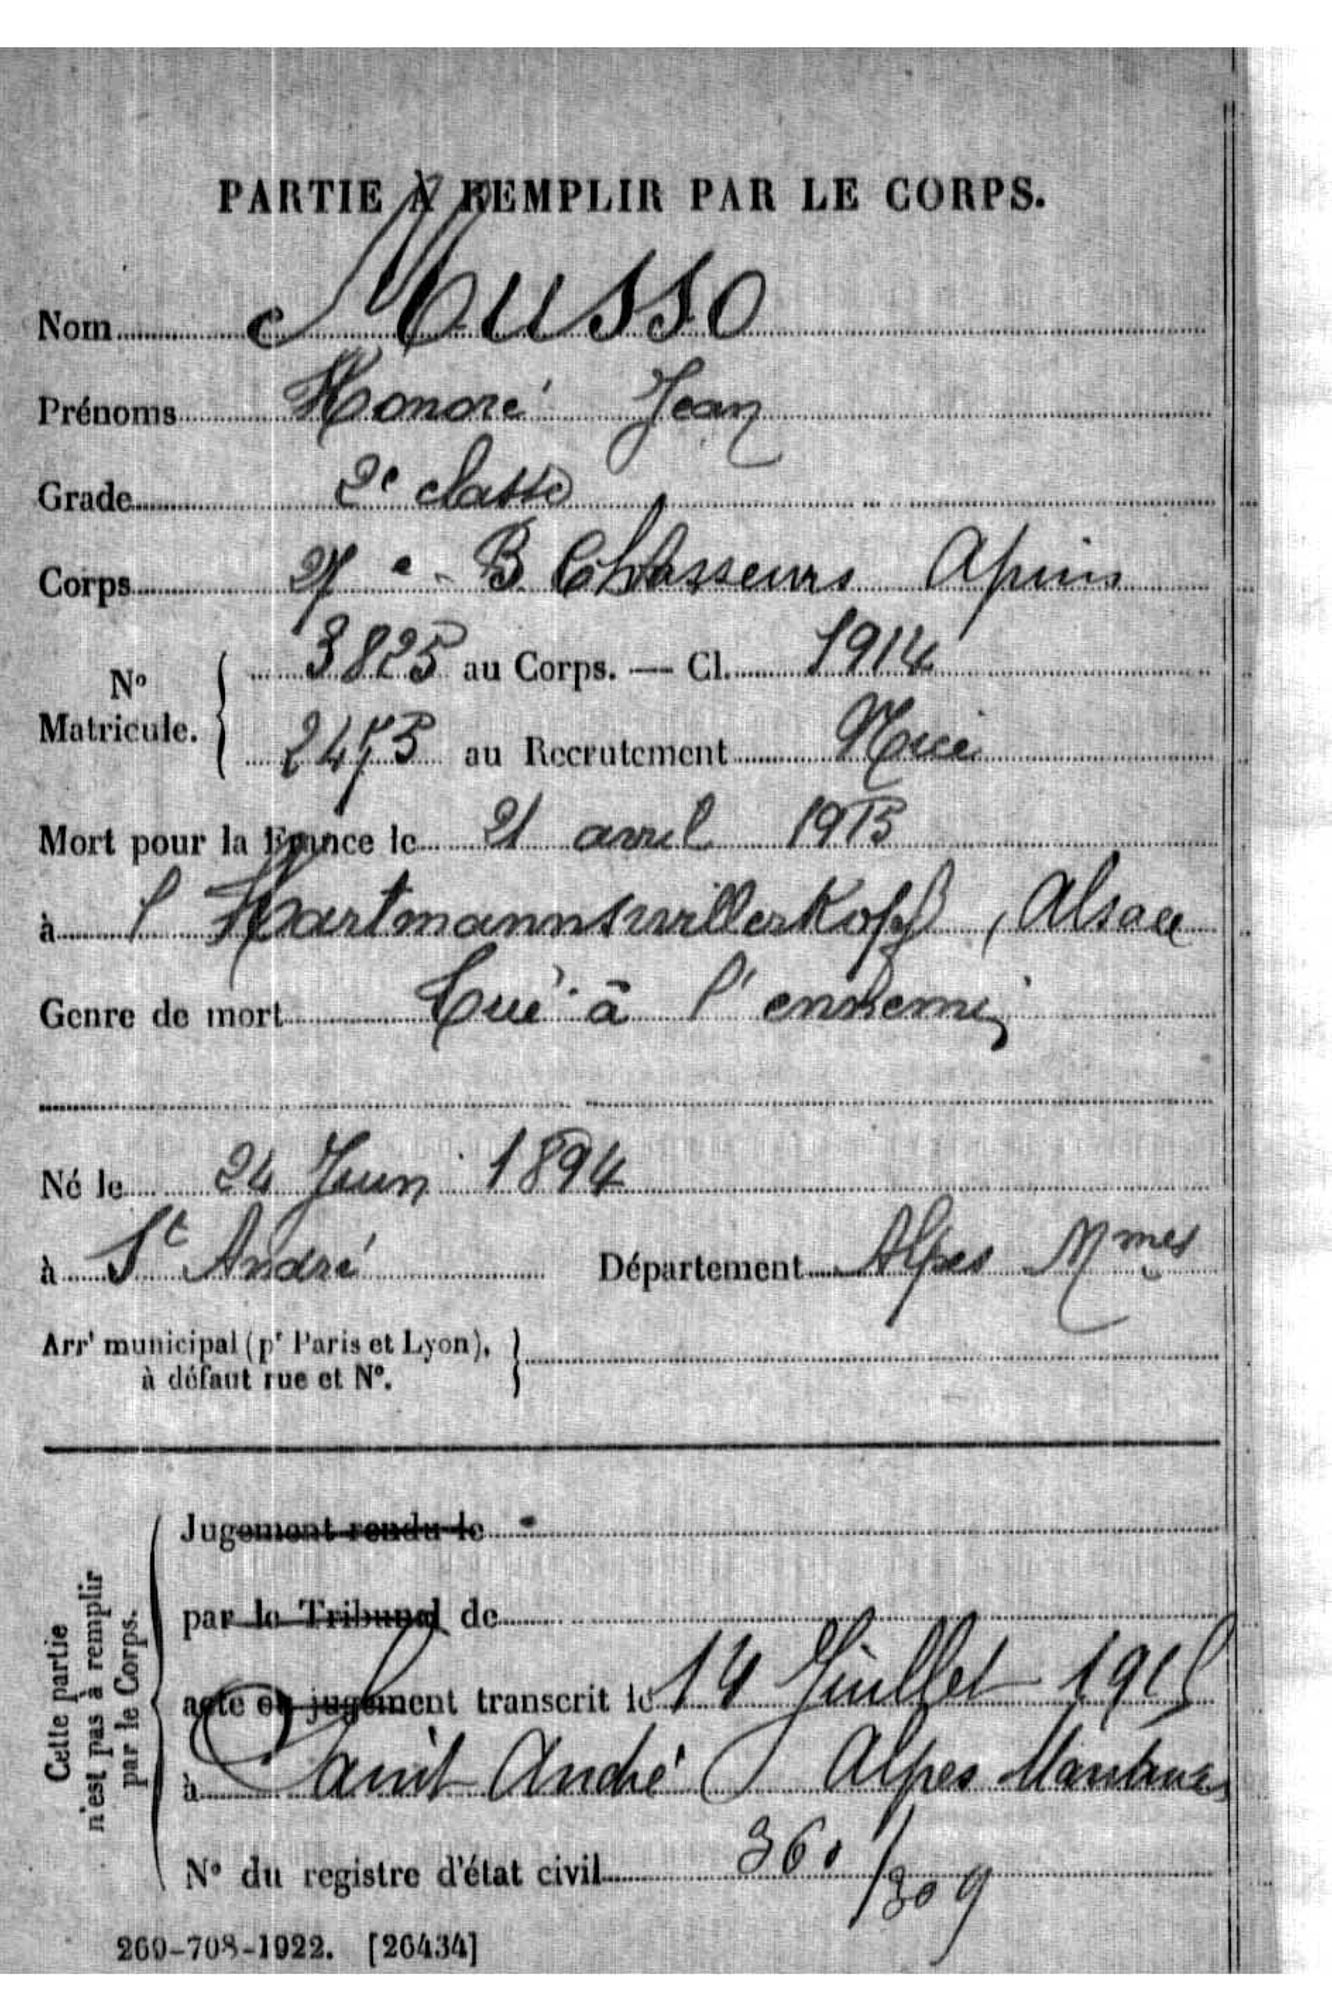 PARTIE À REMPLIR PAR LE CORPS.
Nom Musso
Prénoms Honoré Jean
Grade 2e classe
Corps 27e B. Chasseurs Apins
No Matricule. { 3825 au Corps. — Cl. 1914
2475 au Recrutement Nice
Mort pour la France le 21 avril 1915
à l'Hartmannswillerkopf, Alsace
Genre de mort Tué à l'ennemi
Né le 24 Juin 1894
à St André Département Alpes Mmes
Arrt municipal (pr Paris et Lyon), }
à défaut rue et No.
Cette partie
n'est pas à remplir
par le Corps.
Jugement rendu le
par le Tribunal de
acte ou jugement transcrit le 14 Juillet 1915
à Saint André Alpes Maritimes
No du registre d'état civil
309
260-708-1922. [26434]